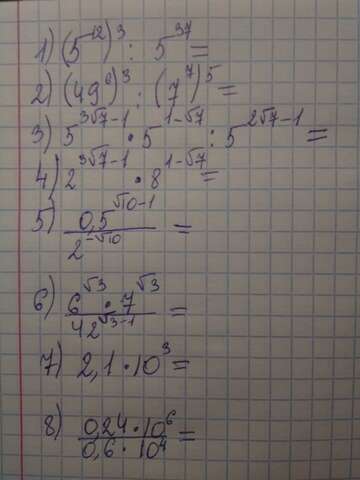 1) (5^12)^3 : 5^37 =
2) (49^6)^3 : (7^7)^5 =
3) 5^(3√7-1) · 5^(1-√7) : 5^(2√7-1) =
4) 2^(3√7-1) · 8^(1-√7) =
5) 0,5^(√10-1) / 2^(-√10) =
6) 6^√3 · 7^√3 / 42^(√3-1) =
7) 2,1 · 10^3 =
8) 0,24 · 10^6 / 0,6 · 10^4 =